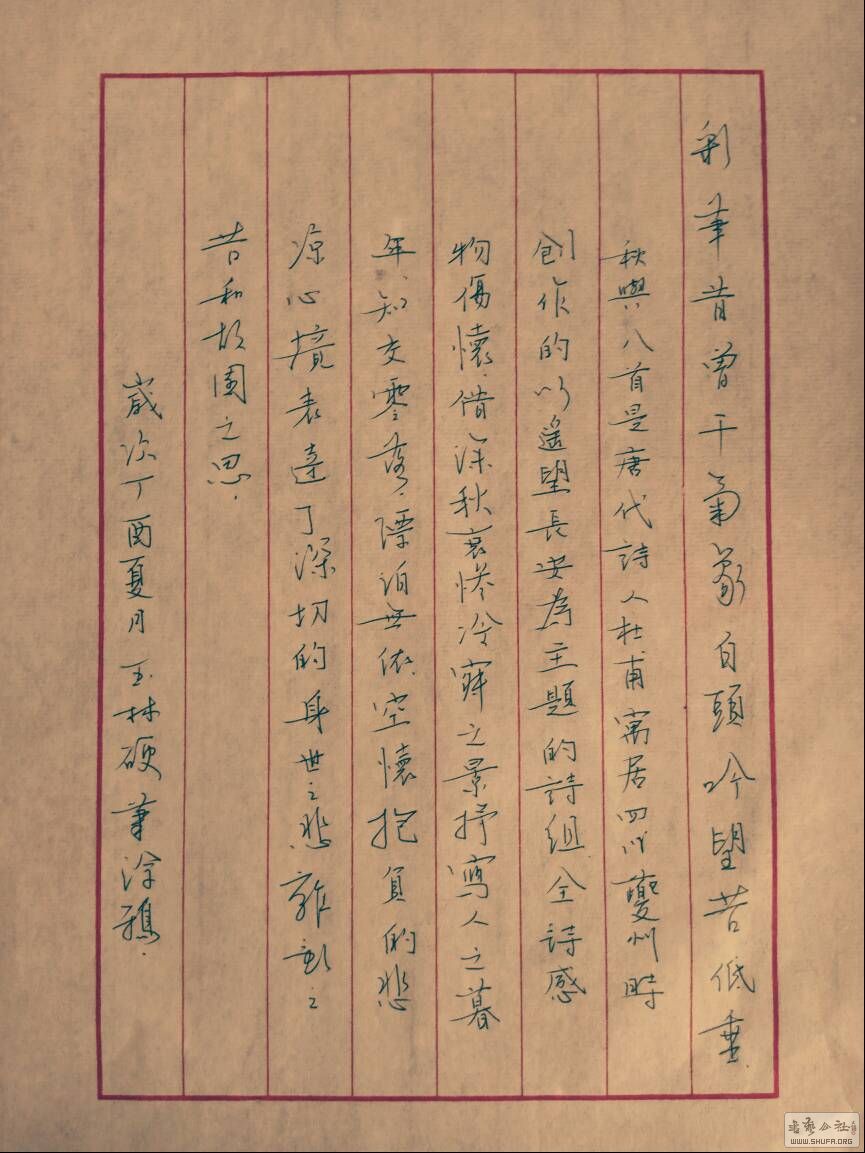 彩筆昔曾干氣象白頭吟望苦低垂
秋興八首是唐代詩人杜甫寓居四川夔州時
創作的以遥望長安為主題的詩組.全詩感
物傷懷.借深秋衰惨冷寂之景抒寫人之暮
年、知交零落、漂泊無依、空懷抱負的悲
凉心境表達了深切的身世之悲離亂之
苦和故園之思.
歲次丁酉夏月玉林硬筆塗鴉.
書藝公社
WWW.SHUFA.ORG